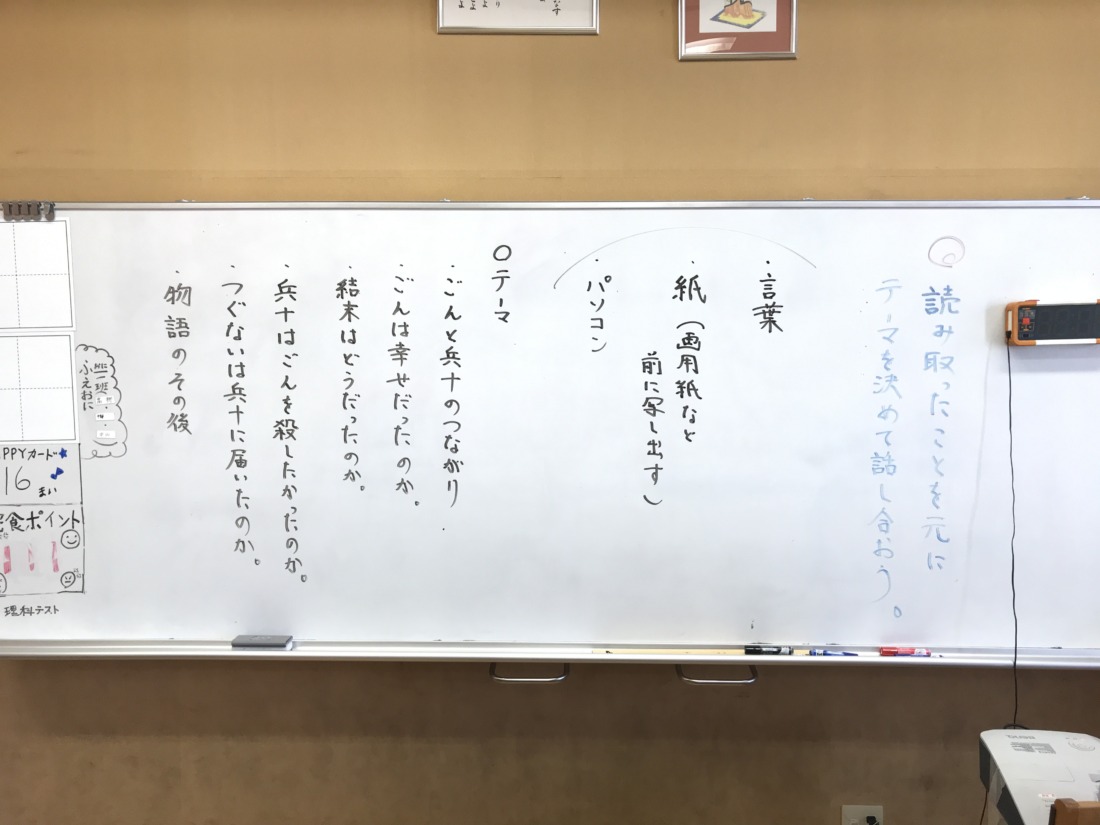 読み取ったことを元に
テーマを決めて話し合おう。
・言葉
・紙（画用紙など
前に写し出す）
・パソコン
○テーマ
・ごんと兵十のつながり.
・ごんは幸せだったのか。
・結末はどうだったのか。
・兵十はごんを殺したかったのか。
・つぐないは兵十に届いたのか。
・物語のその後
ふえおに
PPYカード
16
まい
食ポイント
理科テスト